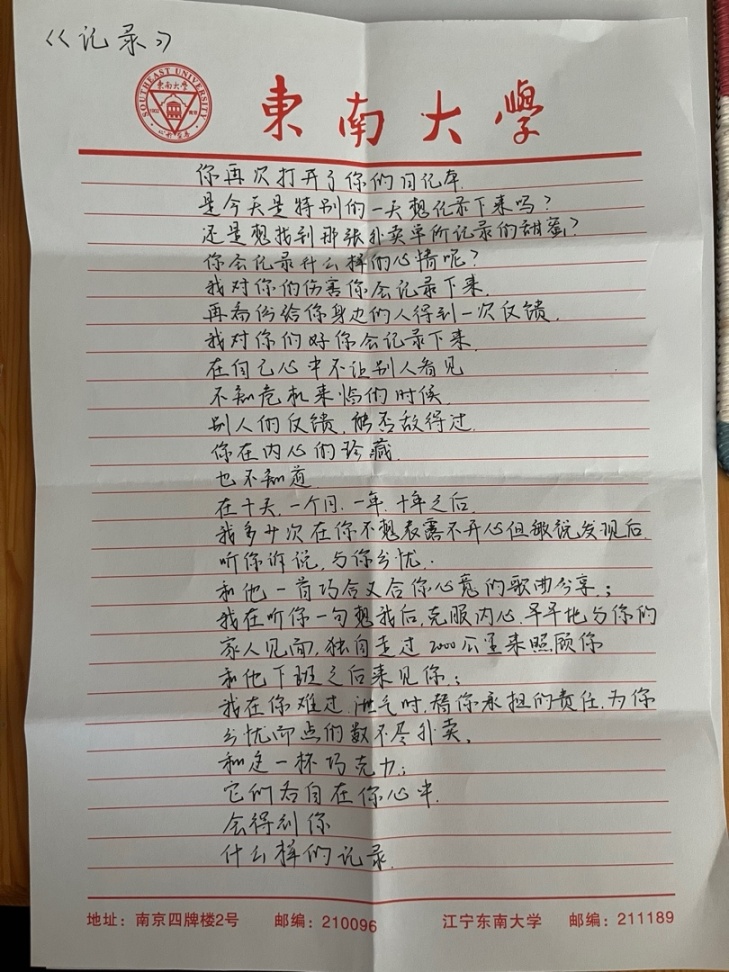 《记录》
SOUTHEAST UNIVERSITY
東南大學
東南大學
你再次打开了你的日记本
是今天是特别的一天想记录下来吗？
还是想找到那张外卖单所记录的甜蜜？
你会记录什么样的心情呢？
我对你的伤害你会记录下来
再看份给你身边的人得到一次反馈
我对你们好你会记录下来
在自己心中不让别人看见
不知危机来临的时候
别人们反馈，能否敌得过
你在内心的珍藏
也不知道
在十天、一个月、一年、十年之后
我多少次在你不想表露不开心但被我发现后
听你诉说，与你分忧，
和他一首巧合又合你心意的歌曲分享；
我在听你一句想我后，克服内心，早早地与你的
家人见面，独自走过2000公里来照顾你
和他下班之后来见你；
我在你难过、泄气时，替你承担的责任，为你
分忧而点的数不尽外卖，
和这一杯巧克力；
它们各自在你心中
会得到你
什么样的记录
地址：南京四牌楼2号 邮编：210096 江宁东南大学 邮编：211189